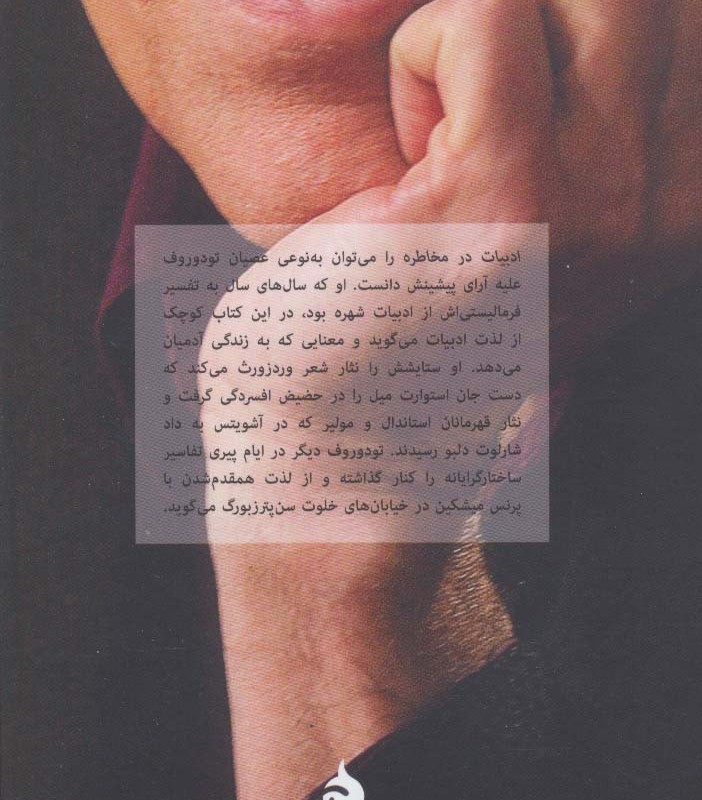 ادبیات در مخاطره را می‌توان به‌نوعی عصیان تودوروف
علیه آرای پیشینش دانست. او که سال‌های سال به تفسیر
فرمالیستی‌اش از ادبیات شهره بود، در این کتاب کوچک
از لذت ادبیات می‌گوید و معنایی که به زندگی آدمیان
می‌دهد. او ستایشش را نثار شعر وردزورث می‌کند که
دست جان استوارت میل را در حضیض افسردگی گرفت و
نثار قهرمانان استاندال و مولیر که در آشویتس به داد
شارلوت دلبو رسیدند. تودوروف دیگر در ایام پیری تفاسیر
ساختارگرایانه را کنار گذاشته و از لذت همقدم‌شدن با
پرنس میشکین در خیابان‌های خلوت سن‌پترزبورگ می‌گوید.